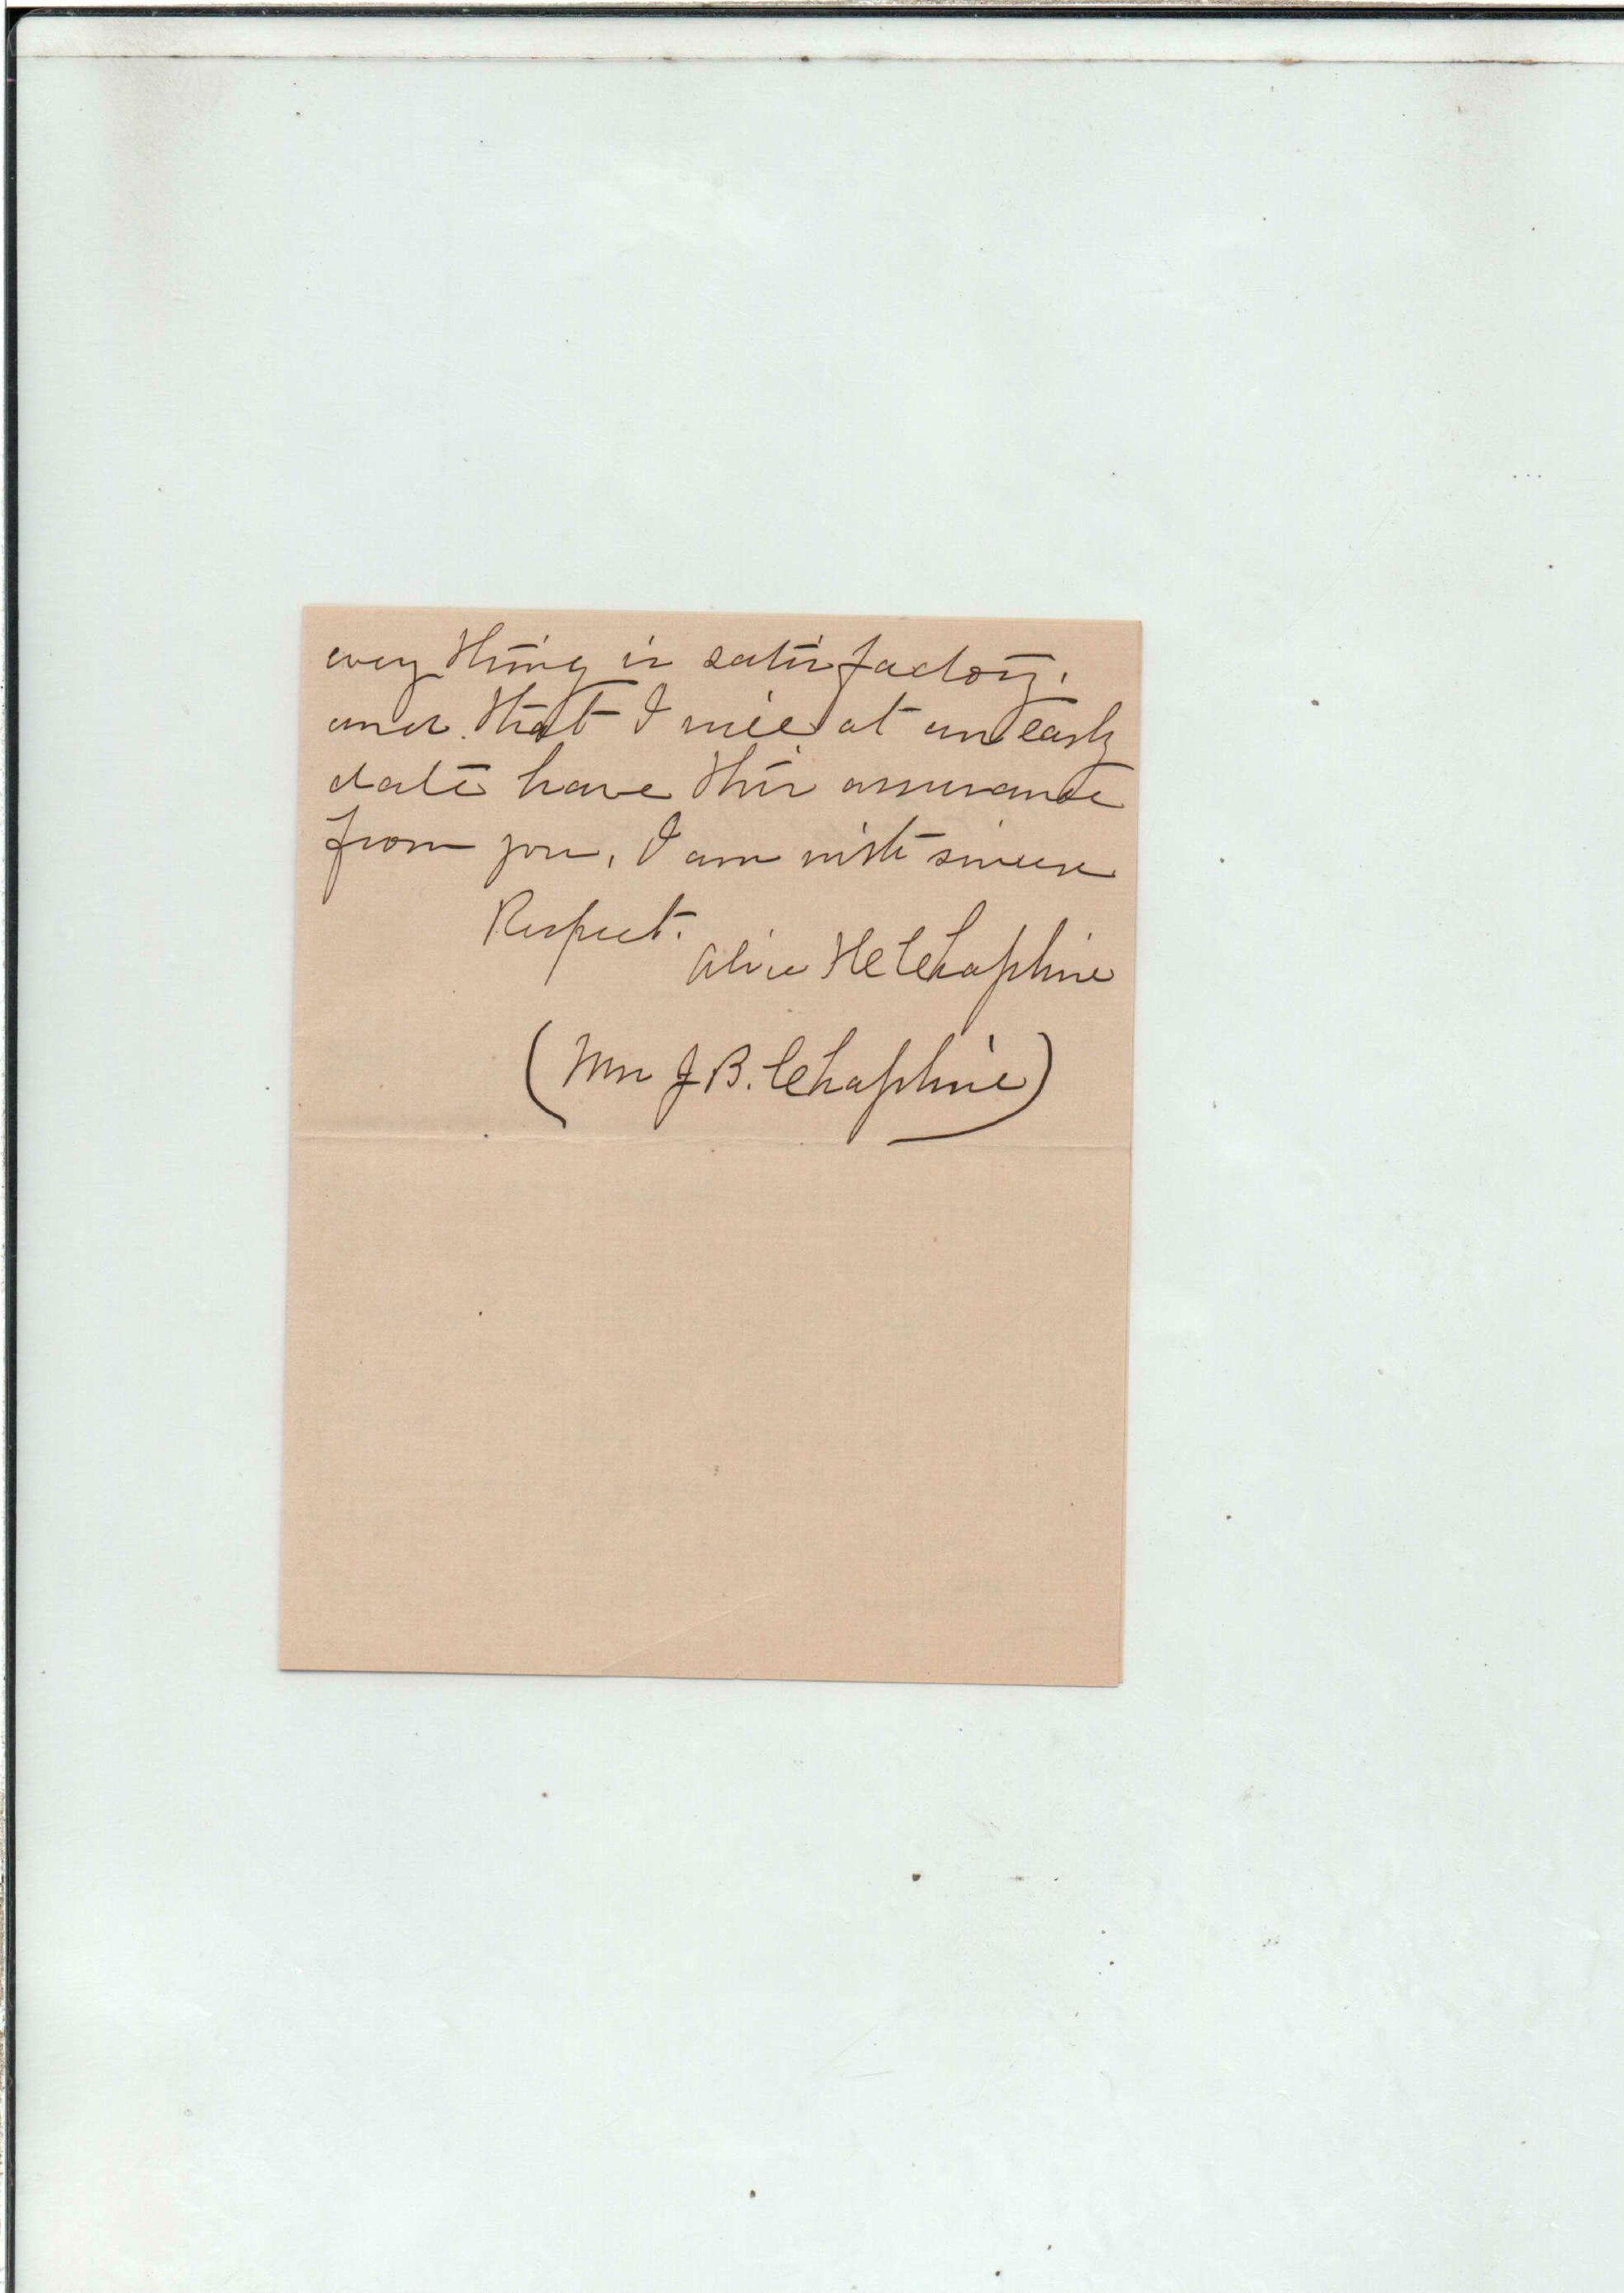 every thing is satisfactory,
and that I will at an early
date have this assurance
from you, I am with sincere
Respect.
Alice H Chapline
(Mrs J B. Chapline)